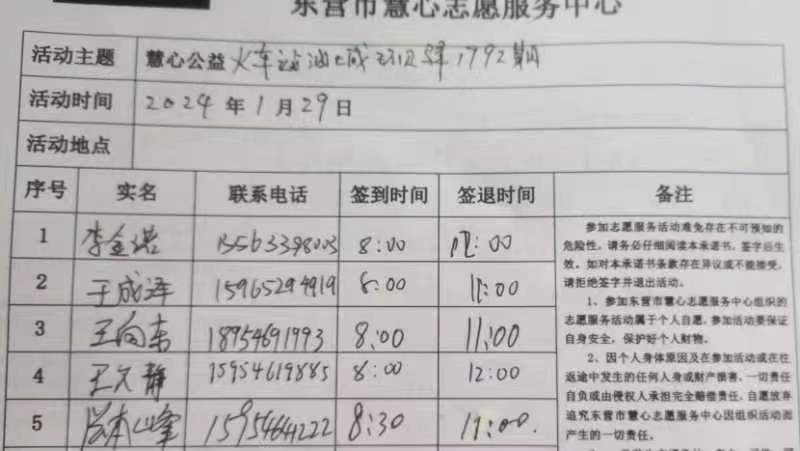 东营市慧心志愿服务中心
活动主题 慧心公益 火车站油城 第1792期
活动时间 2024年1月29日
活动地点
序号 实名 联系电话 签到时间 签退时间 备注
1 李金诺 15563398003 8:00 12:00
2 于成泽 15965294919 8:00 11:00
3 王向东 18954691993 8:00 11:00
4 王久静 15954619885 8:00 12:00
5 本山峰 15954664222 8:30 11:00.
参加志愿服务活动难免存在不可预知的
危险性,请务必仔细阅读本承诺书,签字后生
效。如对本承诺书条款存在异议或不能接受,
请拒绝签字并退出活动。
1、参加东营市慧心志愿服务中心组织的
志愿服务活动属于个人自愿,参加活动要保证
自身安全,保护好个人财物。
2、因个人身体原因及在参加活动或在往
返途中发生的任何人身或财产损害,一切责任
自负或由侵权人承担完全赔偿责任,自愿放弃
追究东营市慧心志愿服务中心因组织活动而
产生的一切责任。